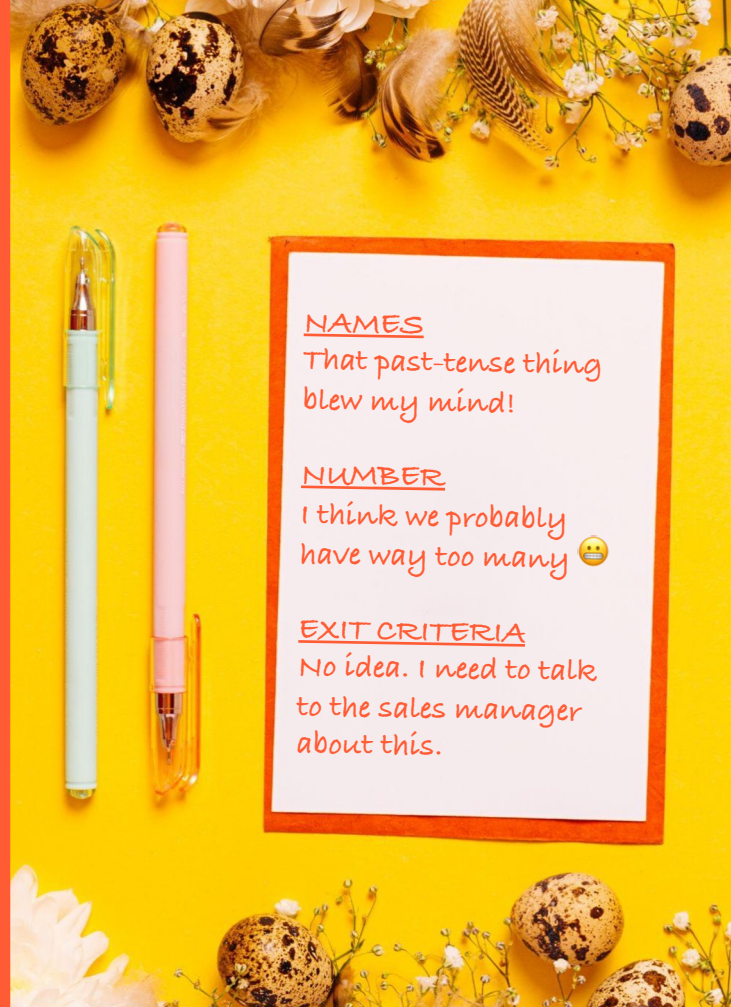 NAMES
That past-tense thing
blew my mind!
NUMBER
I think we probably
have way too many 😬
EXIT CRITERIA
No idea. I need to talk
to the sales manager
about this.